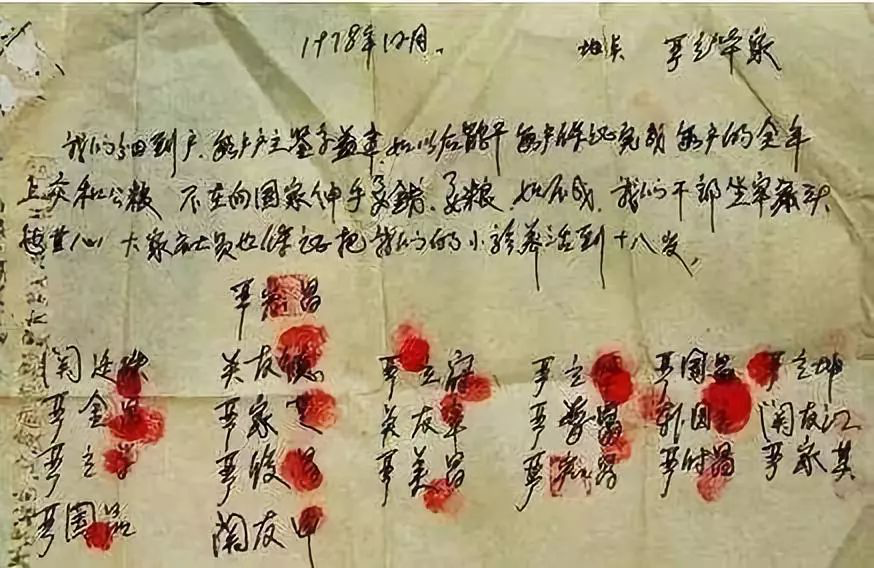 1978年12月. 地点 严立华家
我们分田到户,每户户主签字盖章,如以后能干,每户保证完成每户的全年
上交和公粮 不在向国家伸手要钱,要粮,如不成,我们干部坐牢杀头
也甘心,大家社员也保证把我们的小孩养活到十八岁,
严宏昌
関廷珠 关友德 严立符 严立华 严国昌 严立坤
严金昌 严家芝 关友章 严学昌 韩国云 関友江
严立学 严俊昌 严美昌 严宏昌 严付昌 严家其
严国品 関友申